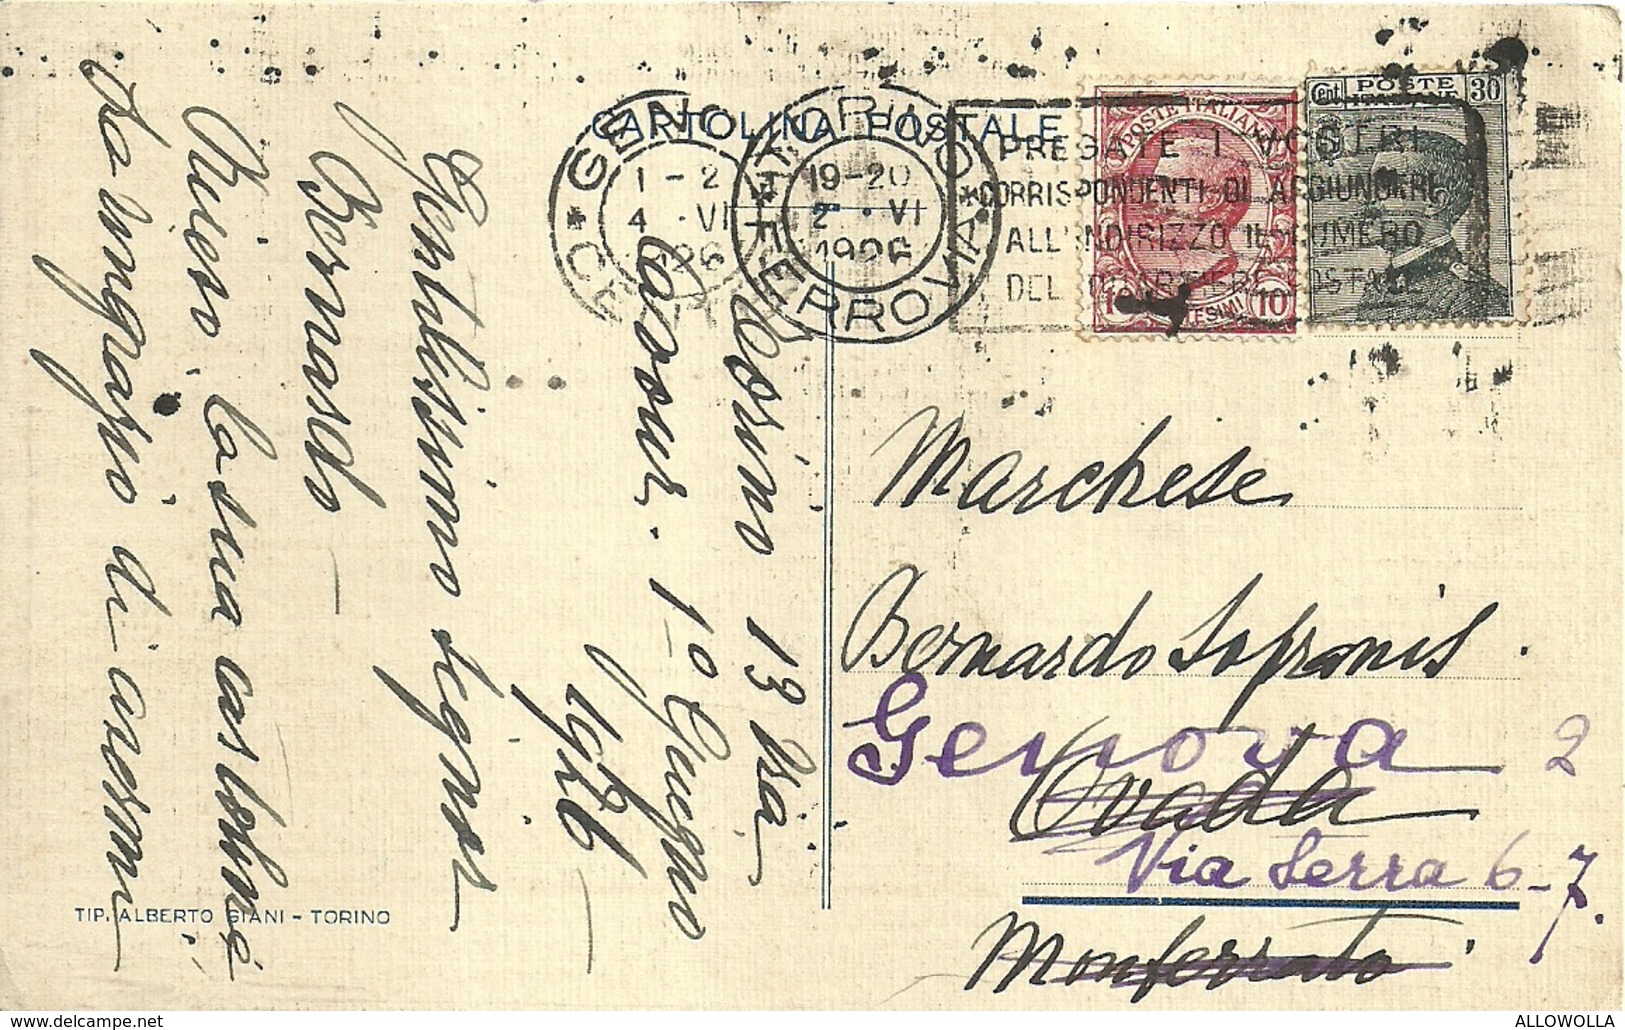 CARTOLINA POSTALE
GENO
1-2
4 . VI
26
TORINO
19-20
2 . VI
1926
FERROVIA
PREGATE I VOSTRI
CORRISPONDENTI DI AGGIUNGERE
ALL'INDIRIZZO IL NUMERO
DEL QUARTIERE POSTALE
POSTE ITALIANE
10
CENTESIMI 10
Cent POSTE 30
ITALIANE
Torino 13 Via
Cavour. 1º Giugno
1926
Gentilissimo Signor
Bernardo
la sua
La ringrazio di
Marchese
Bernardo Sopranis
Genova 2
Ovada
Via Serra 6-7.
Monferrato
TIP. ALBERTO GIANI - TORINO
www.delcampe.net
ALLOWOLLA